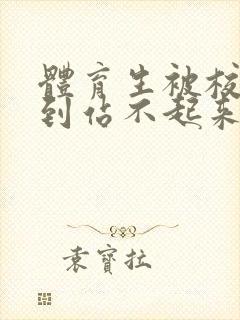 體育生被校
到佔不起來
袁寶拉